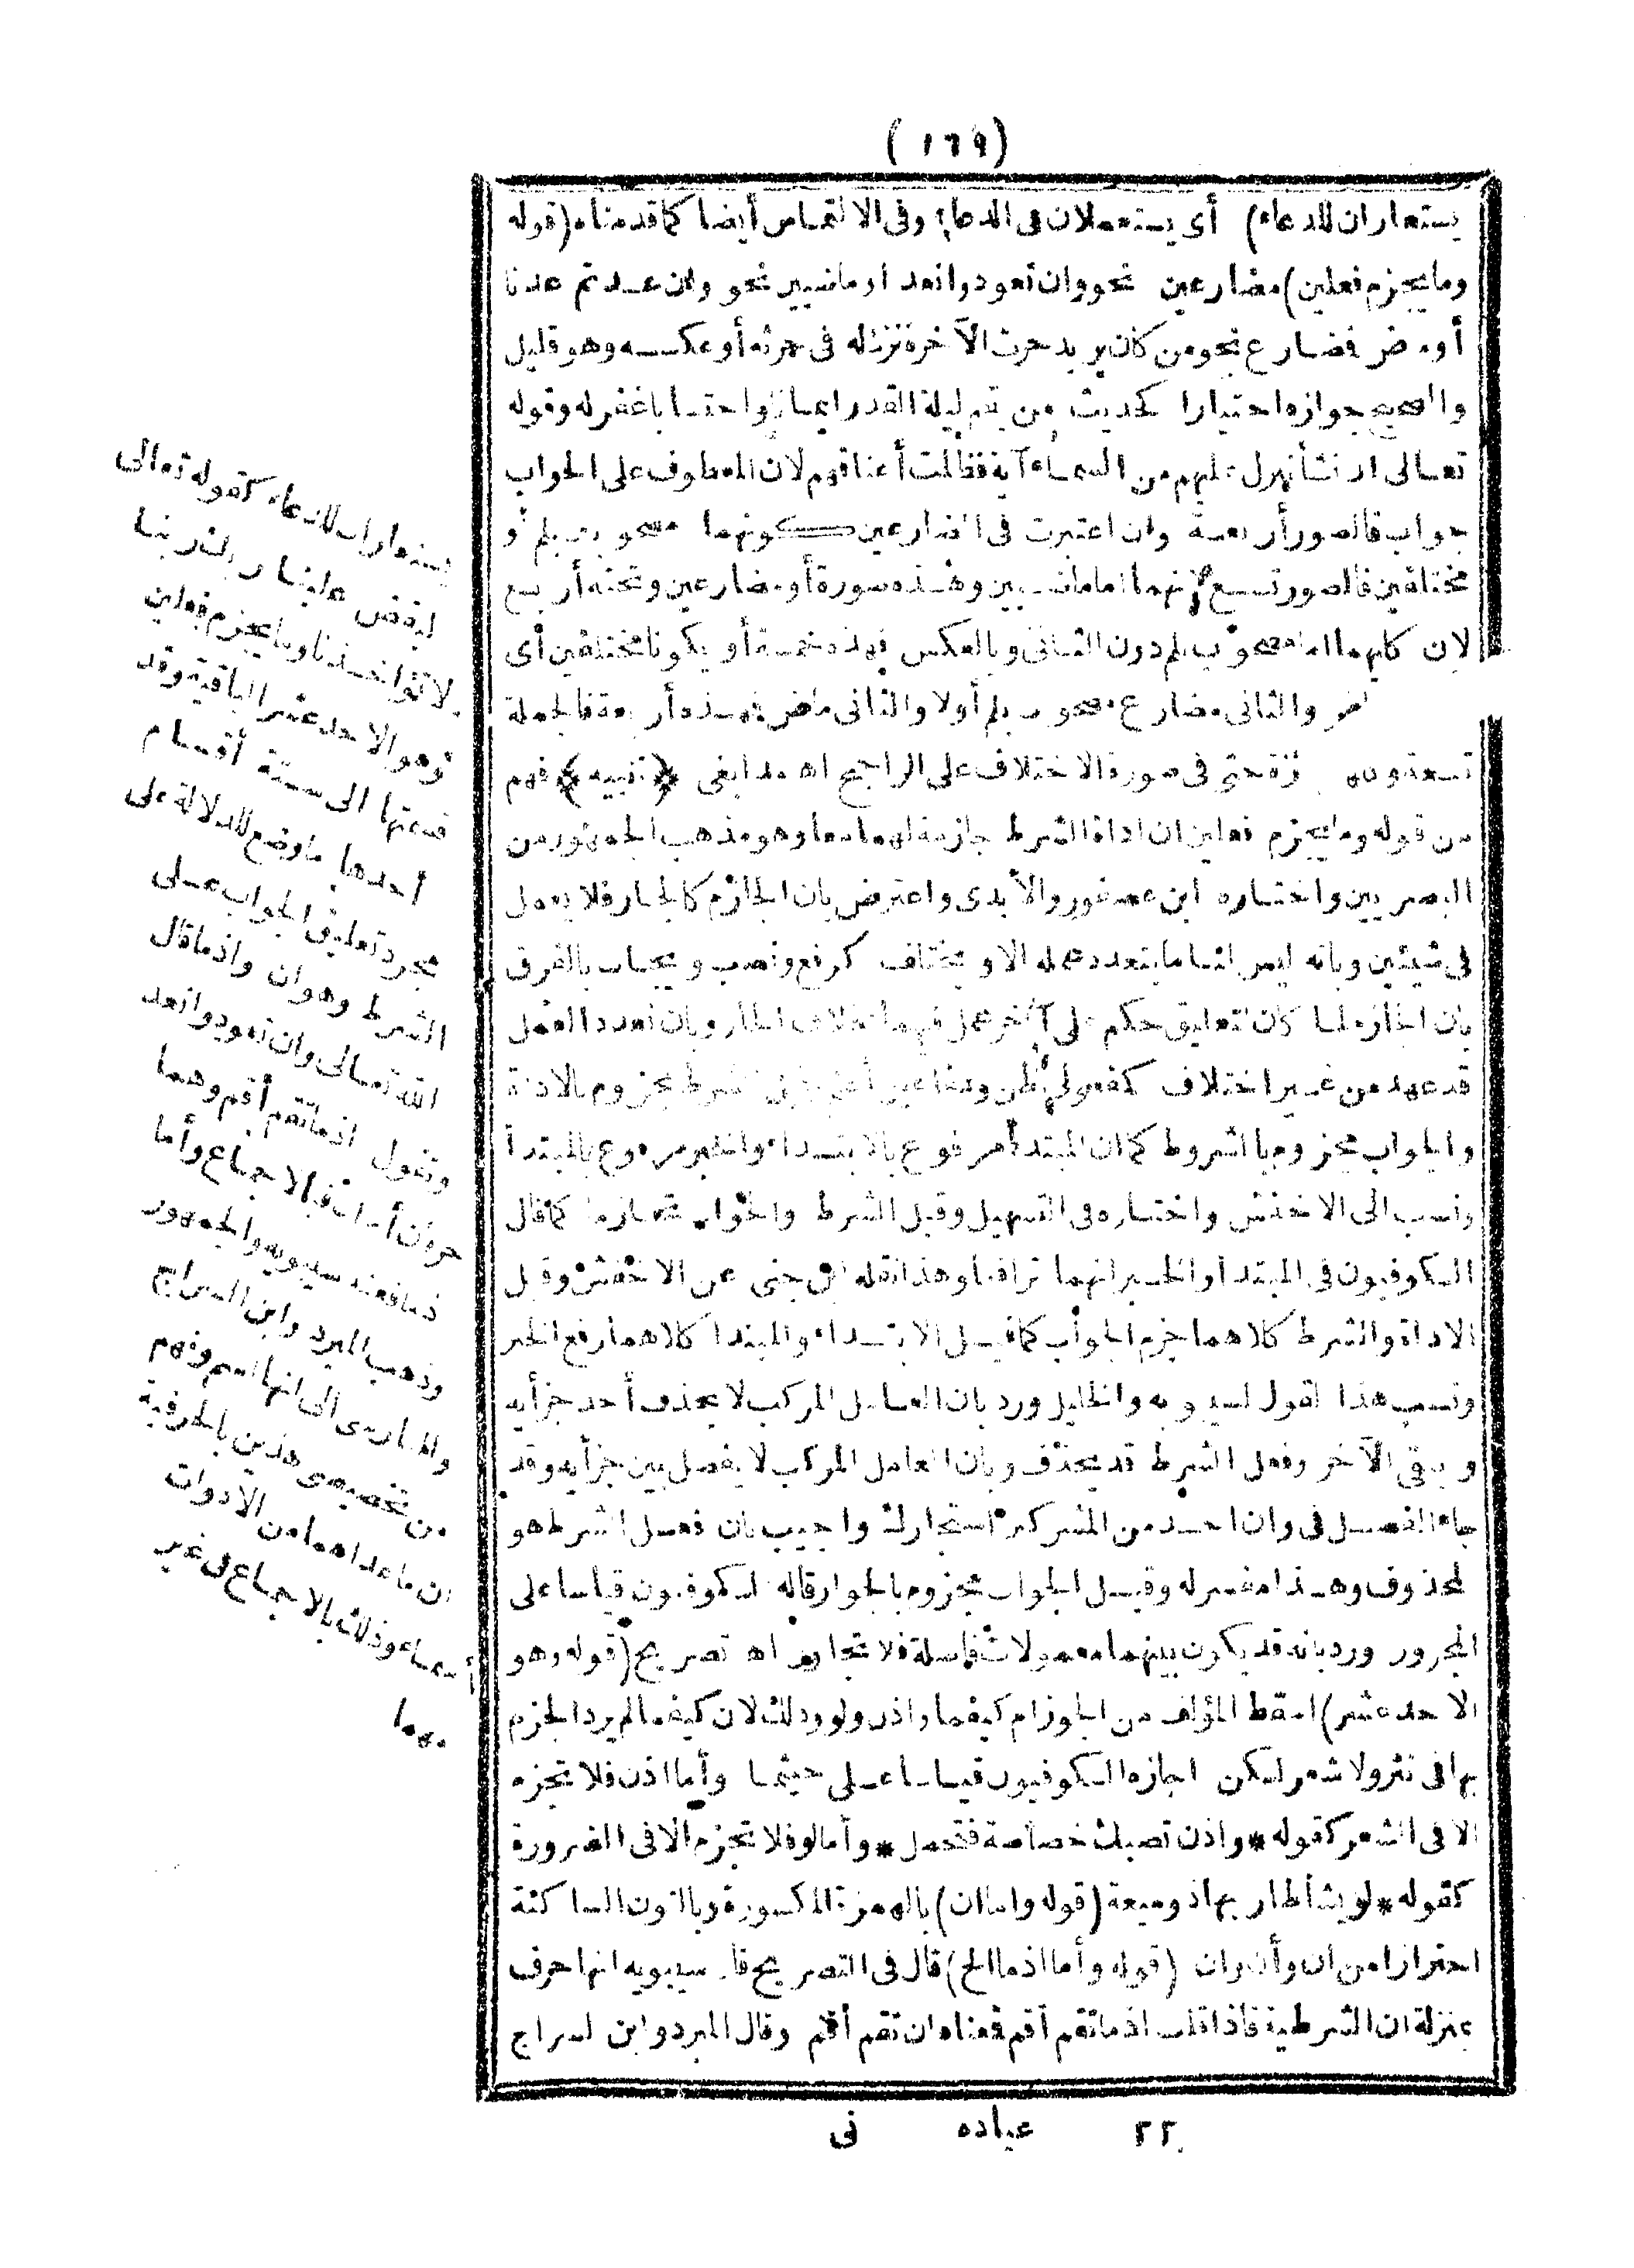 (١٦٩)
يستعاران للدعاء) أى يستعملان فى الدعاء وفى الالتماس أيضا كما قدمناه (قوله
وما يجزم فعلين) مضارعين نحو وان تعودوا نعد أو ماضيين نحو وان عدتم عدنا
أو ماض فمضارع نحو من كان يريد حرث الآخرة نزد له فى حرثه أو عكسه وهو قليل
والصحيح جوازه اختيارا كحديث من يقم ليلة القدر ايمانا واحتسابا غفر له وقوله
تعالى ان نشأ ننزل عليهم من السماء آية فظلت أعناقهم لان المعطوف على الجواب
جواب فالصور أربعة وان اعتبرت فى المضارعين كونهما مصحوبين بلم أو
مختلفين فالصور تسع لانهما اما ماضيين وهذه صورة أو مضارعين وتحته أربع
لان كليهما اما مصحوب بلم دون الثانى وبالعكس فهذه خمسة أو يكونا مختلفين أى
والثانى مضارع مصحوب بلم أولا والثانى ماض فهذه أربعة فالجملة
تسعة حتى فى صورة الاختلاف على الراجح اه مدابغى ﴿تنبيه﴾ فهم
من قوله وما يجزم فعلين ان اداة الشرط جازمة لهما معا وهو مذهب الجمهور من
البصريين واختاره ابن عصفور والأبدى واعترض بان الجازم كالجار فلا يعمل
فى شيئين وبانه ليس لنا ما يتعدد عمله الا ويختلف كرفع ونصب ويجاب بالفرق
بان الجازم لما كان لتعليق حكم على آخر عمل فيهما بخلاف الجار وبان تعدد العمل
قد عهد من غير اختلاف كمفعولى ظن ومفاعيل أعلم وقيل الشرط مجزوم بالاداة
والجواب مجزوم بالشروط كما ان المبتدأ مرفوع بالابتداء والخبر مرفوع بالمبتدأ
ونسب الى الاخفش واختاره فى التسهيل وقيل الشرط والجواب تجازما كما قال
الكوفيون فى المبتدا والخبر انهما ترافعا وهذا نقله ابن جنى عن الاخفش وقيل
الاداة والشرط كلاهما جزم الجواب كما قيل الابتداء والمبتدا كلاهما رفع الخبر
ونسب هذا القول لسيبويه والخليل ورد بان العامل المركب لا يحذف أحد جزأيه
ويبقى الآخر وفعل الشرط قد يحذف وبان العامل المركب لا يفصل بين جزأيه وقد
جاء الفصل فى وان احد من المشركين استجارك واجيب بان فعل الشرط هو
المحذوف وهذا مفسر له وقيل الجواب مجزوم بالجوار قاله الكوفيون قياسا على
المجرور ورد بانه قد يكون بينهما معمولات فاصلة فلا تجاور اه تصريح (قوله وهو
الاحد عشر) اسقط المؤلف من الجوازم كيفما واذن ولو وذلك لان كيفما لم يرد الجزم
بها فى نثر ولا شعر لكن اجازه الكوفيون قياسا على حيثما وأما اذن فلا تجزم
الا فى الشعر كقوله * واذن تصبك خصاصة فتحمل * وأما لو فلا تجزم الا فى الضرورة
كقوله * لو يشأ طار بها ذو ميعة (قوله واما ان) بالهمزة المكسورة وبالنون الساكنة
احترازا من ان وأن وان (قوله وأما اذما الخ) قال فى التصريح قال سيبويه انها حرف
بمنزلة ان الشرطية فاذا قلت اذما تقم أقم فمعناه ان تقم أقم وقال المبرد وابن السراج
٢٢ عباده فى
يستعاران للدعاء كقوله تعالى
ليقض علينا ربك ربنا
لا تؤاخذنا وما يجزم فعلين
وهو الاحد عشر الباقية وقد
قسمتها الى ستة أقسام
أحدها ما وضع للدلالة على
مجرد تعليق الجواب على
الشرط وهو ان واذما قال
الله تعالى وان تعودوا نعد
وتقول اذما تقم أقم وهما
حرفان أما ان فبالاجماع وأما
اذما فعند سيبويه والجمهور
وذهب المبرد وابن السراج
والفارسى الى انها اسم وفهم
من تخصيصى هذين بالحرفية
ان ما عداهما من الادوات
أسماء وذلك بالاجماع فى غير
مهما